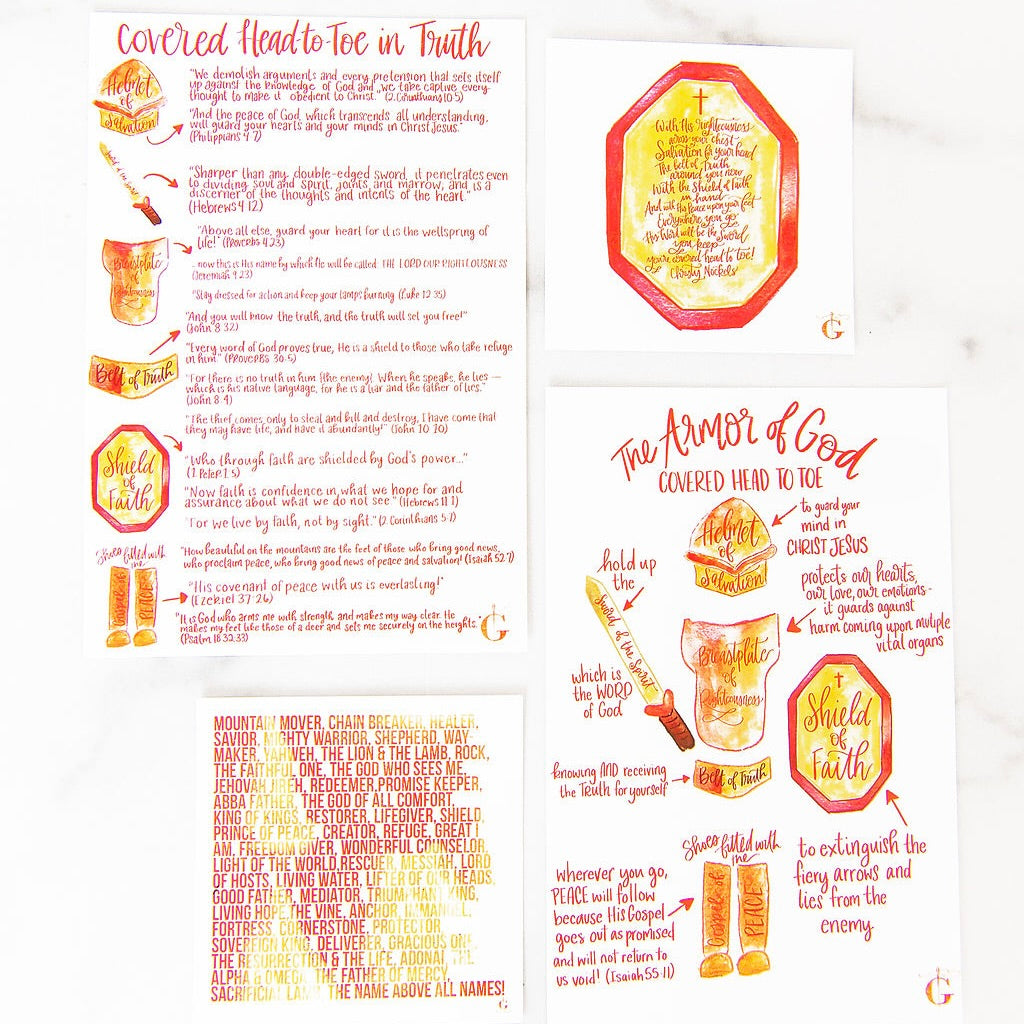 Covered Head-to-Toe in Truth
Helmet
of
Salvation!
"We demolish arguments and every pretension that sets itself
up against the knowledge of God and we take captive every
thought to make it obedient to Christ." (2 Corinthians 10:5)
"And the peace of God, which transcends all understanding,
will guard your hearts and your minds in Christ Jesus."
(Philippians 4:7)
Sword of the Spirit
"Sharper than any double-edged sword, it penetrates even
to dividing soul and spirit, joints and marrow, and is a
discerner of the thoughts and intents of the heart."
(Hebrews 4:12)
Breastplate
of
Righteousness
"Above all else, guard your heart for it is the wellspring of
life!" (Proverbs 4:23)
...now this is His name by which He will be called: THE LORD OUR RIGHTEOUSNESS
(Jeremiah 9:23)
"Stay dressed for action and keep your lamps burning (Luke 12:35)
"And you will know the truth, and the truth will set you free!"
(John 8:32)
Belt of Truth
"Every word of God proves true, He is a shield to those who take refuge
in him." (Proverbs 30:5)
"For there is no truth in him (the enemy). When he speaks, he lies –
which is his native language, for he is a liar and the father of lies."
(John 8:4)
"The thief comes only to steal and kill and destroy, I have come that
they may have life, and have it abundantly!" (John 10:10)
Shield
of
Faith
"Who through faith are shielded by God's power..."
(1 Peter 1:5)
"Now faith is confidence in what we hope for and
assurance about what we do not see" (Hebrews 11:1)
"For we live by faith, not by sight." (2 Corinthians 5:7)
Shoes filled with
me
Gospel of
PEACE
"How beautiful on the mountains are the feet of those who bring good news,
who proclaim peace, who bring good news of peace and salvation! (Isaiah 52:7)
"His covenant of peace with us is everlasting!"
(Ezekiel 37:26)
"It is God who arms me with strength and makes my way clear. He
makes my feet like those of a deer and sets me securely on the heights."
(Psalm 18:32,33)
G
With His righteousness
across your chest
Salvation for your head
The belt of Truth
around you now
With the Shield of Faith
in hand
And with His peace upon your feet
Everywhere you go
His Word will be the Sword
you keep
you're covered head to toe!
Christy Nockels
G
The Armor of God
COVERED HEAD TO TOE
Helmet
of
Salvation!
to guard your
mind in
CHRIST JESUS
hold up
the
Sword of the Spirit
which is
the WORD
of God
Breastplate
of
Righteousness
protects our hearts,
our love, our emotions-
it guards against
harm coming upon muliple
vital organs
knowing AND receiving
the Truth for yourself
Belt of Truth
Shield
of
Faith
to extinguish the
fiery arrows and
lies from the
enemy
Shoes filled with
me
Gospel of
PEACE
wherever you go,
PEACE will follow
because His Gospel
goes out as promised
and will not return to
us void! (Isaiah 55:11)
G
MOUNTAIN MOVER, CHAIN BREAKER, HEALER,
SAVIOR, MIGHTY WARRIOR, SHEPHERD, WAY-
MAKER, YAHWEH, THE LION & THE LAMB, ROCK,
THE FAITHFUL ONE, THE GOD WHO SEES ME,
JEHOVAH JIREH, REDEEMER,PROMISE KEEPER,
ABBA FATHER, THE GOD OF ALL COMFORT,
KING OF KINGS, RESTORER, LIFEGIVER, SHIELD,
PRINCE OF PEACE, CREATOR, REFUGE, GREAT I
AM, FREEDOM GIVER, WONDERFUL COUNSELOR,
LIGHT OF THE WORLD,RESCUER, MESSIAH, LORD
OF HOSTS, LIVING WATER, LIFTER OF OUR HEADS,
GOOD FATHER, MEDIATOR, TRIUMPHANT KING,
LIVING HOPE, THE VINE, ANCHOR, IMMANUEL,
FORTRESS, CORNERSTONE, PROTECTOR,
SOVEREIGN KING, DELIVERER, GRACIOUS ONE,
THE RESURRECTION & THE LIFE, ADONAI, THE
ALPHA & OMEGA, THE FATHER OF MERCY,
SACRIFICIAL LAMB, THE NAME ABOVE ALL NAMES!
G